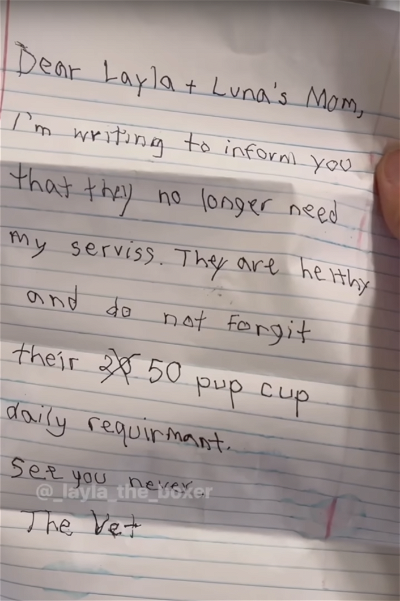 Dear Layla + Luna's Mom,
I'm writing to inform you
that they no longer need
my serviss. They are helthy
and do not forgit
their 50 pup cup
daily requirmant.
See you never
@_layla_the_boxer
The Vet